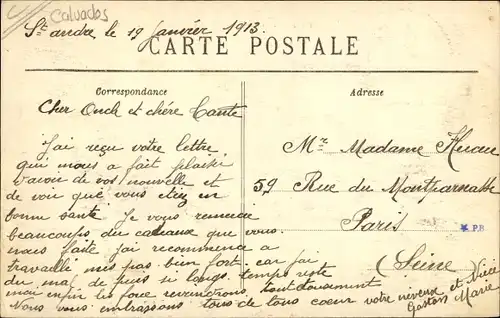 Calvados
St anda le 19 janvier 1913.
CARTE POSTALE
Correspondance
Cher Oncle et chère Tante
J'ai reçu votre lettre
qui nous a fait plaisir
d'avoir de vos nouvelle et
de voir que vous etiez en
bonne santé Je vous remercie
beaucoups du cadeaux que vous
nous faite j'ai recommencé a
travaillé mes pas bien fort car j'ai
du mal de puis si longs temps resté
mai enfin les force reviendrons tout doucement
Nous vous embrassons tous de tous coeur votre neveux et Niece
Gaston Marie
Adresse
Mr Madame
59 Rue du Montparnasse
Paris
(Seine)
P.B